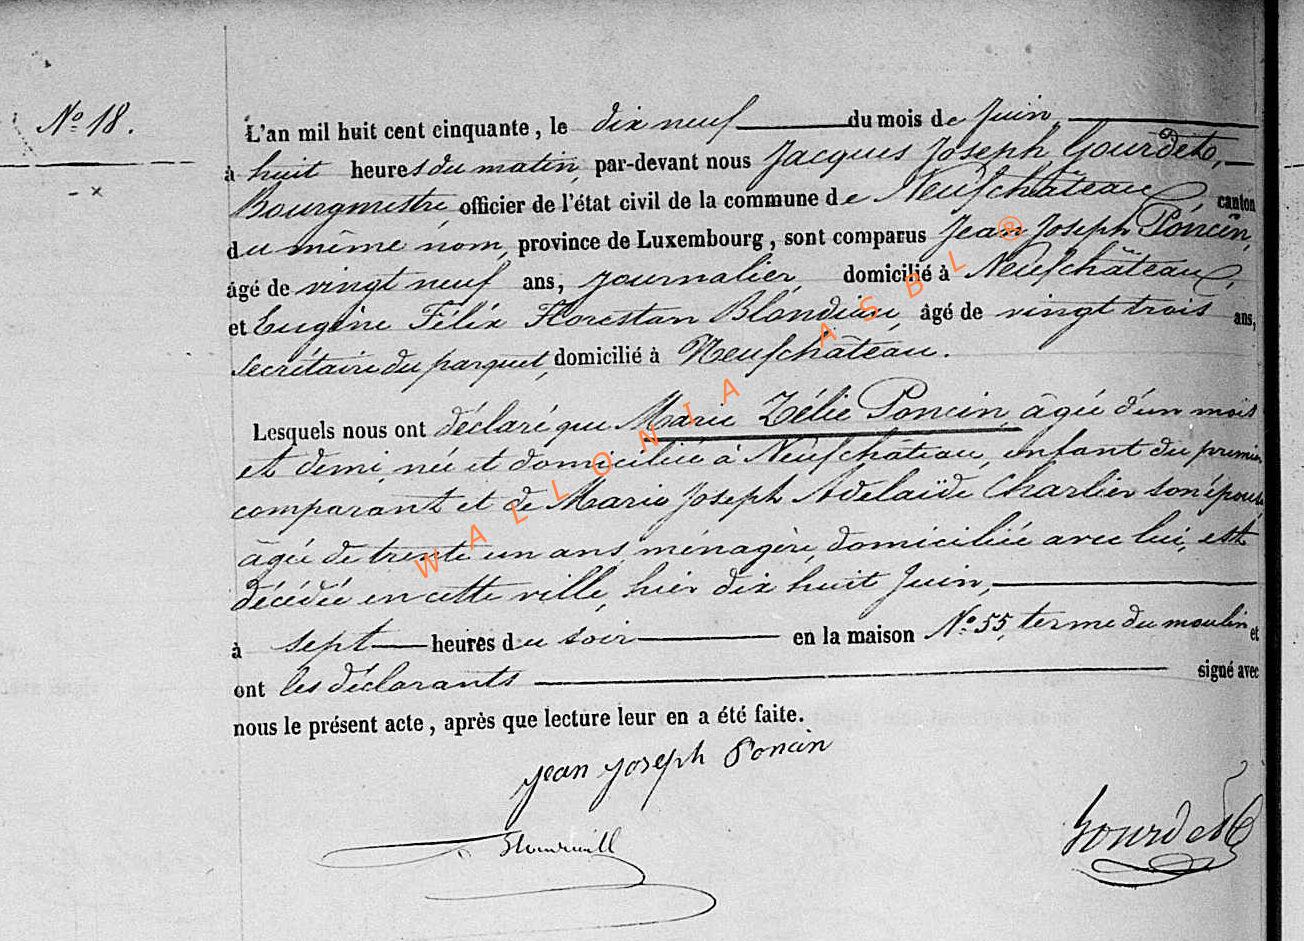 N° 18.
L'an mil huit cent cinquante, le dix neuf du mois de Juin,
à huit heures du matin, par-devant nous Jacques Joseph Gourdet,
Bourgmestre officier de l'état civil de la commune de Neufchâteau, canton
du même nom, province de Luxembourg, sont comparus Jean Joseph Poncin,
âgé de vingt neuf ans, journalier, domicilié à Neufchâteau,
et Eugène Félix Florestan Blondiau, âgé de vingt trois ans,
secrétaire du parquet, domicilié à Neufchâteau.
Lesquels nous ont déclaré que Marie Zélie Poncin, âgée d'un mois
et demi, née et domiciliée à Neufchâteau, enfant du premier
comparant et de Marie Joseph Adelaïde Charlier son épouse,
âgée de trente un ans, ménagère, domiciliée avec lui, est
décédée en cette ville, hier dix huit Juin,
à sept heures du soir en la maison N° 55, terme du moulin et
ont les déclarants signé avec
nous le présent acte, après que lecture leur en a été faite.
Jean Joseph Poncin
Gourdet
WALLONIA ASBL ®